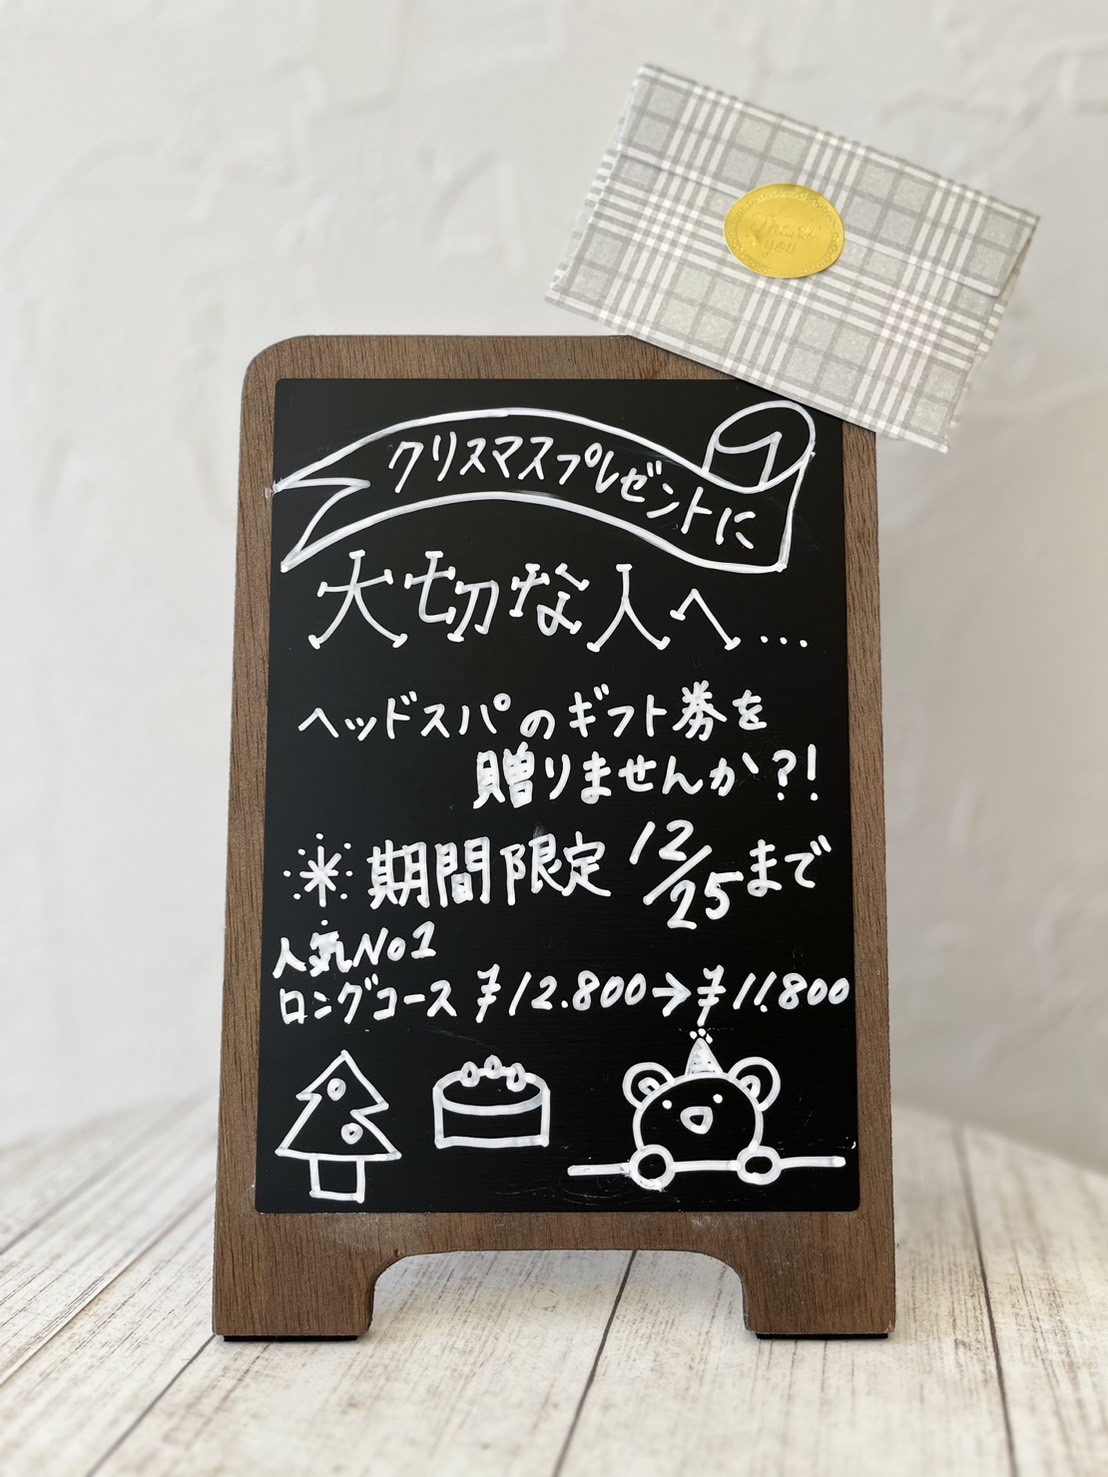 Thank you
クリスマスプレゼントに
大切な人へ...
ヘッドスパのギフト券を
贈りませんか?!
期間限定 12/25まで
人気No1
ロングコース ¥12.800→¥11.800